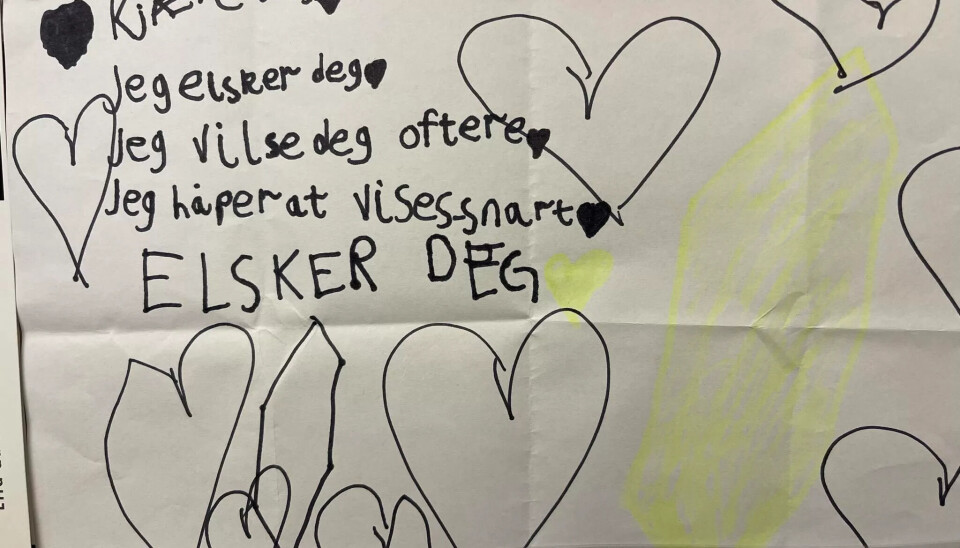 Kjære
Jeg elsker deg
Jeg vil se deg oftere
Jeg håper at vi sess snart
ELSKER DEG